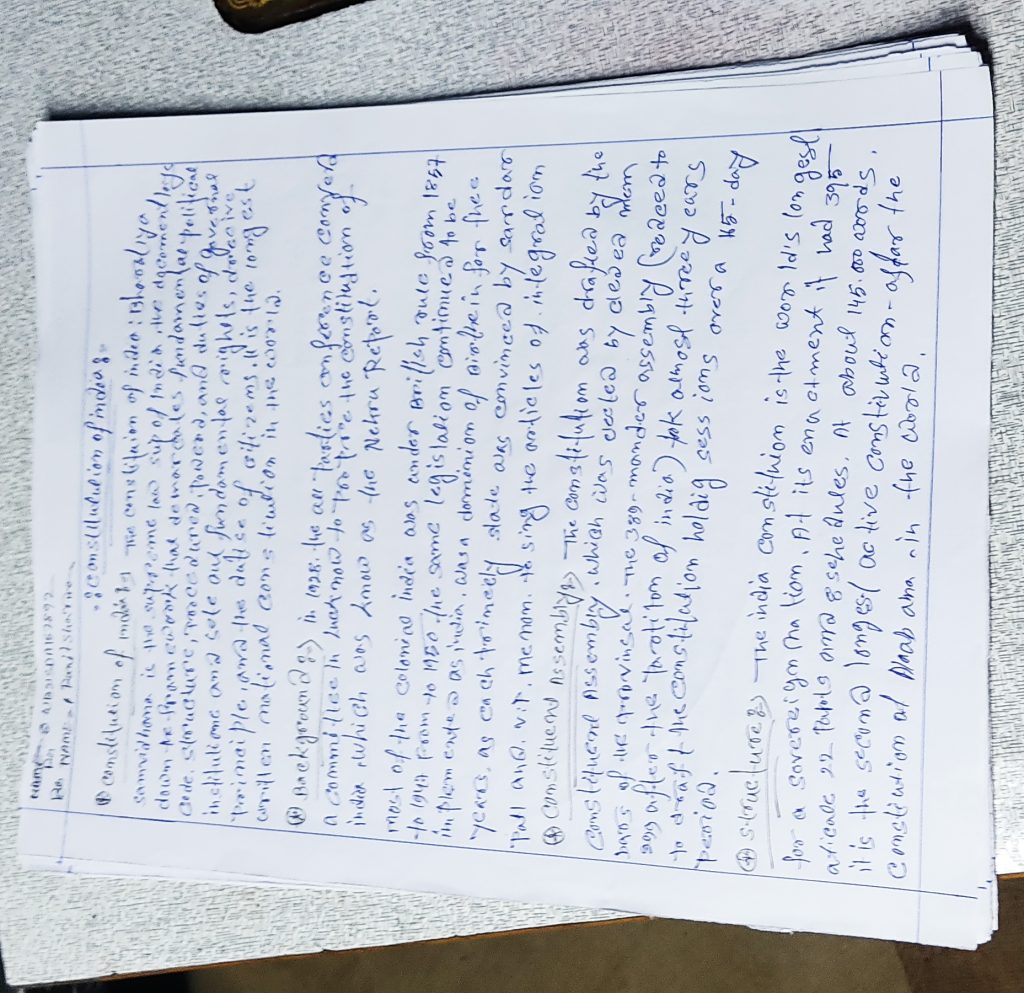 NAME = Pankaj sharma
:: constitutution of india ::
constitution of india :→ The constitution of india : Bharatiya
samvidhana is the supreme law sup of India. the document lays
down he framework that demarcates fundamental political
code, structure, procedured, powerd, and duties of govermet
institutione and sole out fundamental rights, dirактive
principle, and the dutise of citizens. it is the long est
written national cons titution in the world.
Background :→ in 1928. the all parties conference convfend
a committee in lucknow to pre pare the constitution of
india which was know as the Nehru Report.
most of tha colonial india was under British rule from 1857
to 1947 From to 1950. the same legistation continued to be
implemented as india. was a dominion of for three
years, as ea ch princely state was convinced by sardar
Patl and. v.p. menon. to sing the articles of. integrat ion
constituend Assembly :→ The constitution was drafted by the
constituend Assembly. which was elected by elected mem
bers of the provinsal. The 389-mamder assembly (reduced to
299 after the partition of india) tok almost three y ears
to draf t the constitution holdig sess ions over a 165-day
period.
structure :→ The india constituion is the world's longest
for a sovereign na tion. At its enactment it had 395
aticale 22 parts and 8 schedules. At about 145.000 words.
it is the second longest active constitution - after the
constitution of Alab ama . in the world.